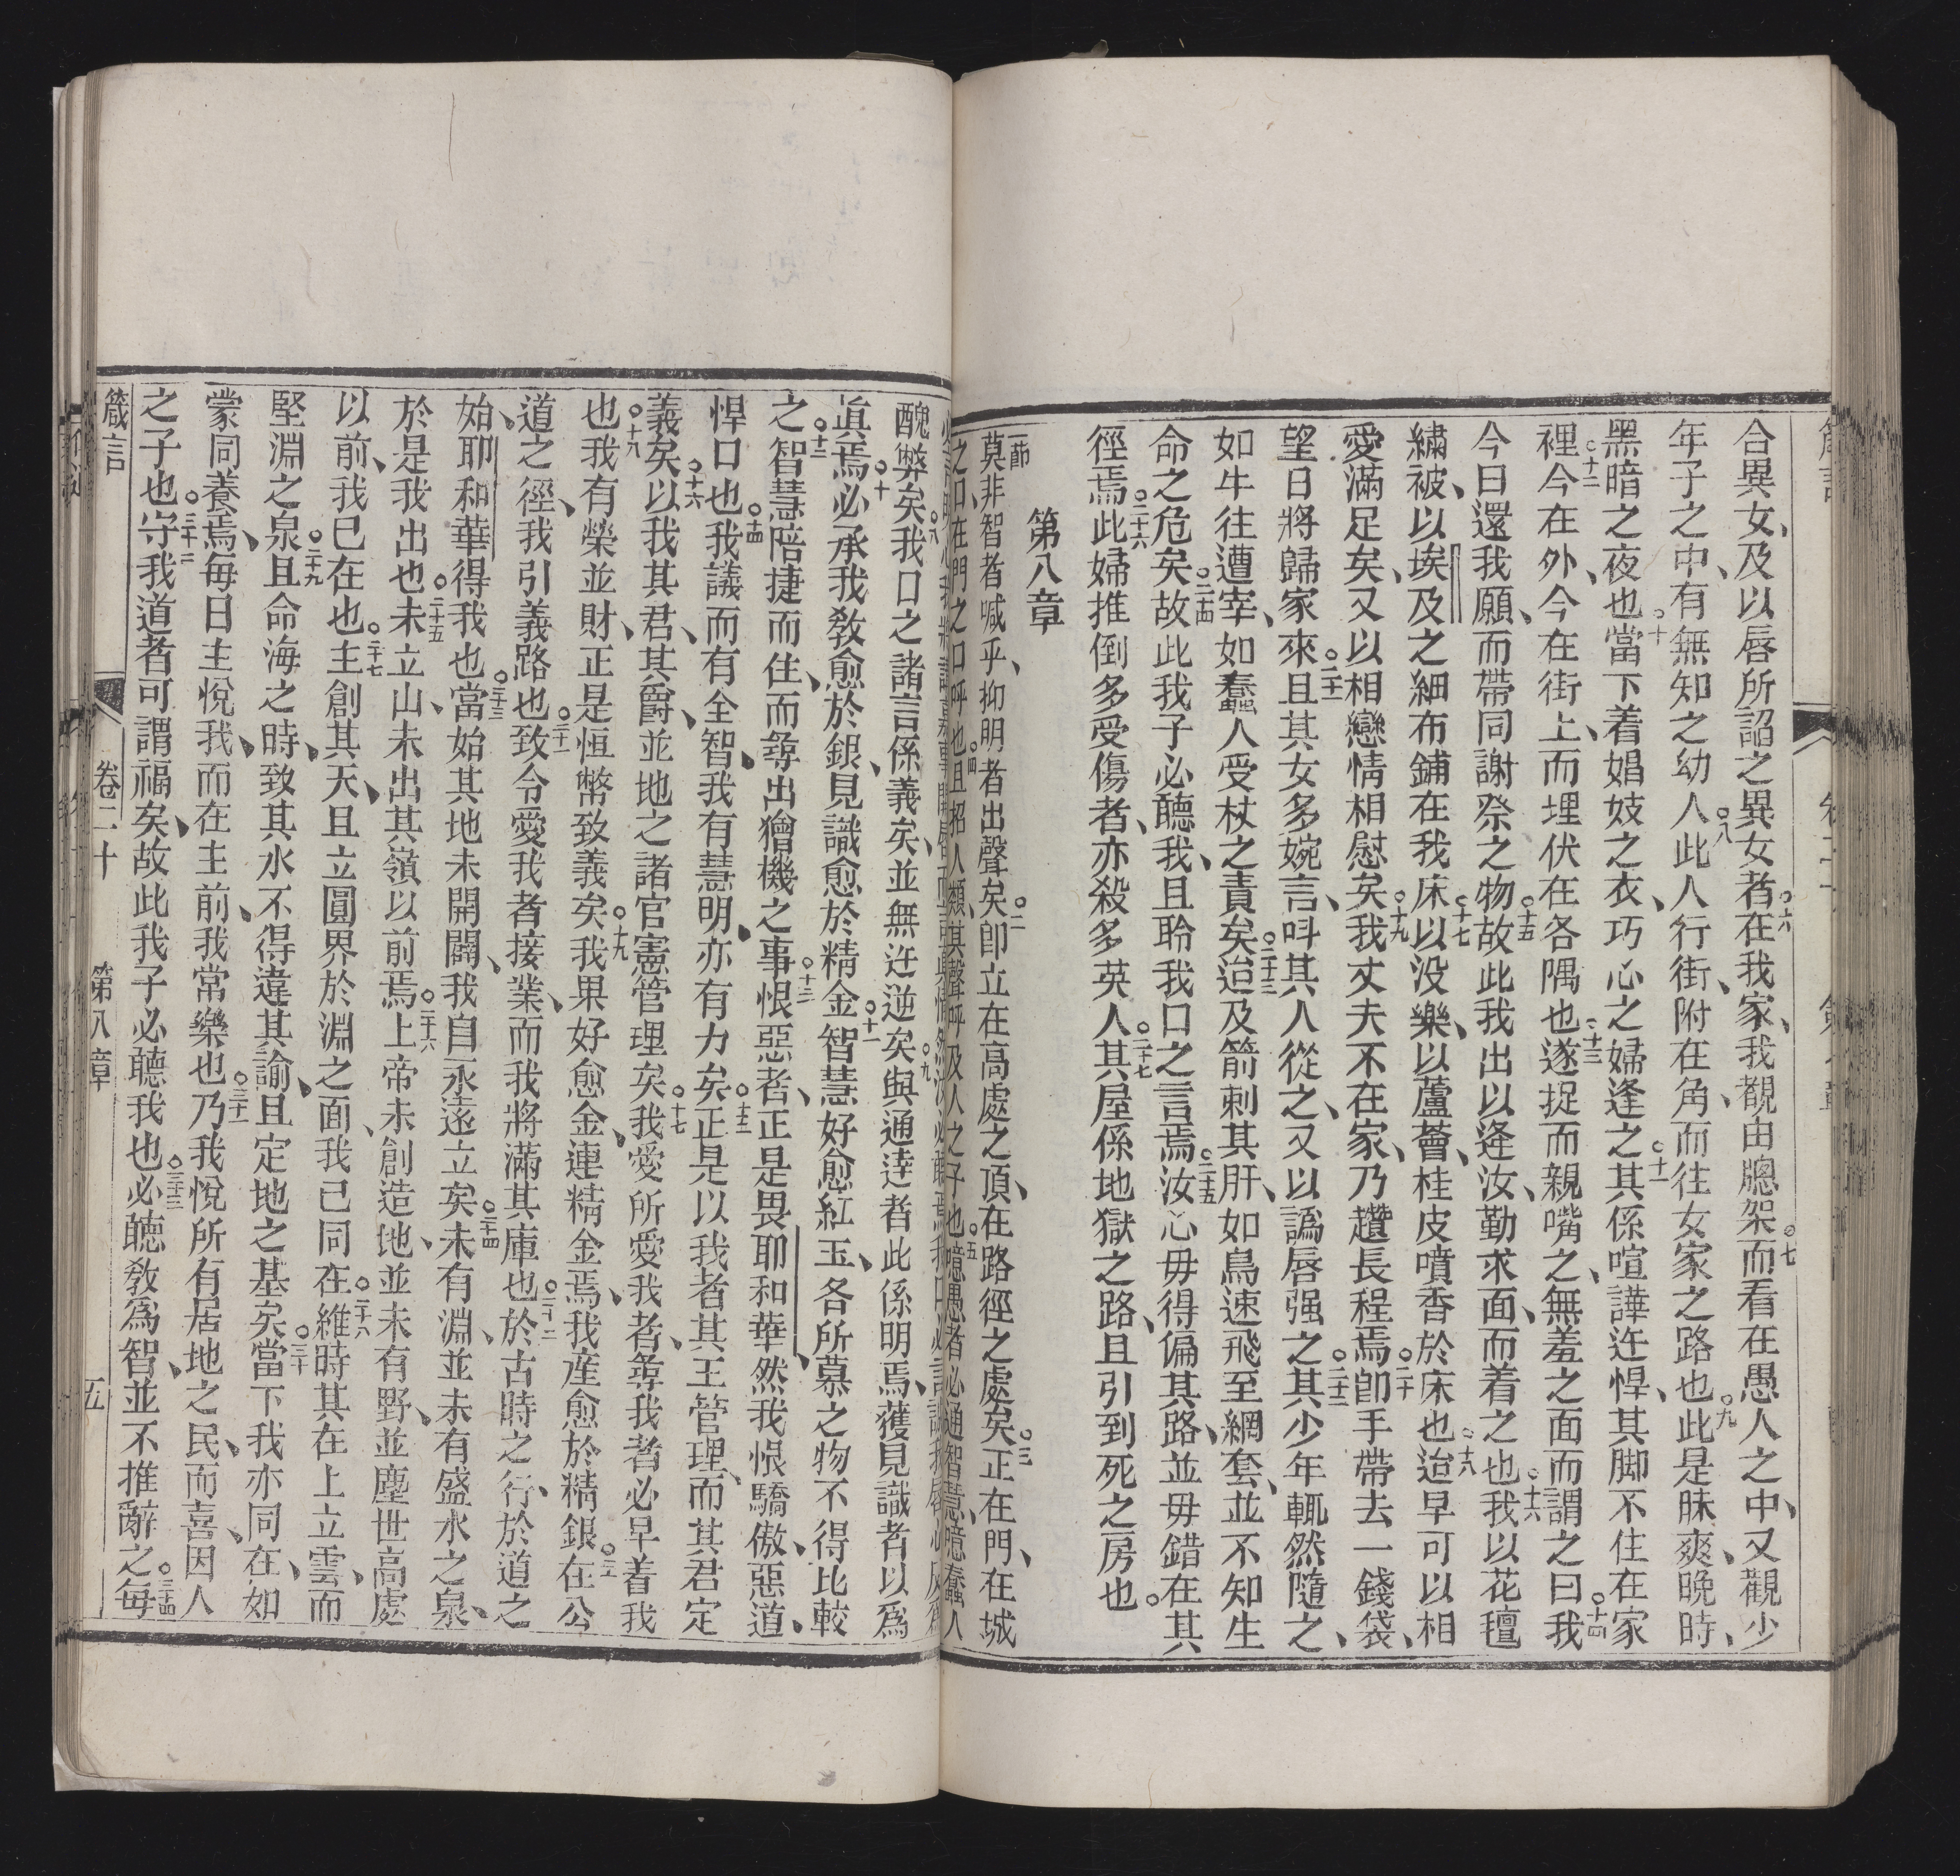 合異女、及以唇所謟之異女者在我家、我覩由牕架而看在愚人之中、又觀少
年子之中、有無知之幼人此人行街、附在角、而往女家之路也此是昧爽、晚時、
黑暗之夜也當下着娼妓之衣、巧心之婦逢之其係喧譁迕悍、其脚不住在家
裡今在外、今在街上、而埋伏在各隅也遂捉而親嘴之、無羞之面而謂之曰我
今日還我願、而帶同謝祭之物故此我出以逄汝、勤求面、而着之也我以花氊
繡被、以埃及之細布鋪在我床以没樂、以蘆薈、桂皮噴香於床也迨早可以相
愛滿足矣、又以相戀情相慰矣我丈夫不在家、乃趲長程焉卽手帶去一錢袋、
望日將歸家來且其女多婉言、叫其人從之、又以譌唇强之其少年輒然隨之、
如牛往遭宰、如蠢人受杖之責矣迨及箭刺其肝、如鳥速飛至網套、並不知生
命之危矣故此我子必聽我、且聆我口之言焉汝心毋得偏其路、並毋錯在其
徑焉此婦推倒多受傷者、亦殺多英人其屋係地獄之路、且引到死之房也。
第八章
莫非智者喊乎、抑明者出聲矣卽立在高處之頂、在路徑之處矣正在門、在城
之口、在門之口呼也且招人類、其聲呼及人之子也噫愚者必通智慧、噫蠢人
醜弊矣我口之諸言係義矣、並無迕逆矣與通達者此係明焉、獲見識者以爲
眞焉必承我敎愈於銀、見識愈於精金智慧好愈紅玉、各所慕之物不得比較
之智慧陪捷而住、而尋出獪機之事恨惡者、正是畏耶和華、然我恨驕傲、惡道、
悍口也我議而有全智、我有慧明、亦有力矣正是以我者其王管理、而其君定
義矣以我其君、其爵、並地之諸官憲管理矣我愛所愛我者、尋我者必早着我
也我有榮並財、正是恒幣致義矣我果好愈金、連精金焉、我産愈於精銀在公
道之徑、我引義路也致令愛我者接業、而我將滿其庫也於古時之行、於道之
始、耶和華得我也當始其地未開闢、我自永遠立矣未有淵、並未有盛水之泉、
於是我出也未立山、未出其嶺以前焉上帝未創造地、並未有野、並塵世高處
以前、我已在也主創其天、且立圓界於淵之面、我已同在維時其在上立雲、而
堅淵之泉且命海之時、致其水不得違其諭、且定地之基矣當下我亦同在、如
蒙同養焉、毎日主悅我、而在主前、我常樂也乃我悅所有居地之民、而喜、因人
之子也守我道者可謂福矣、故此我子必聽我也必聽敎爲智、並不推辭之每
箴言 卷二十 第八章 五